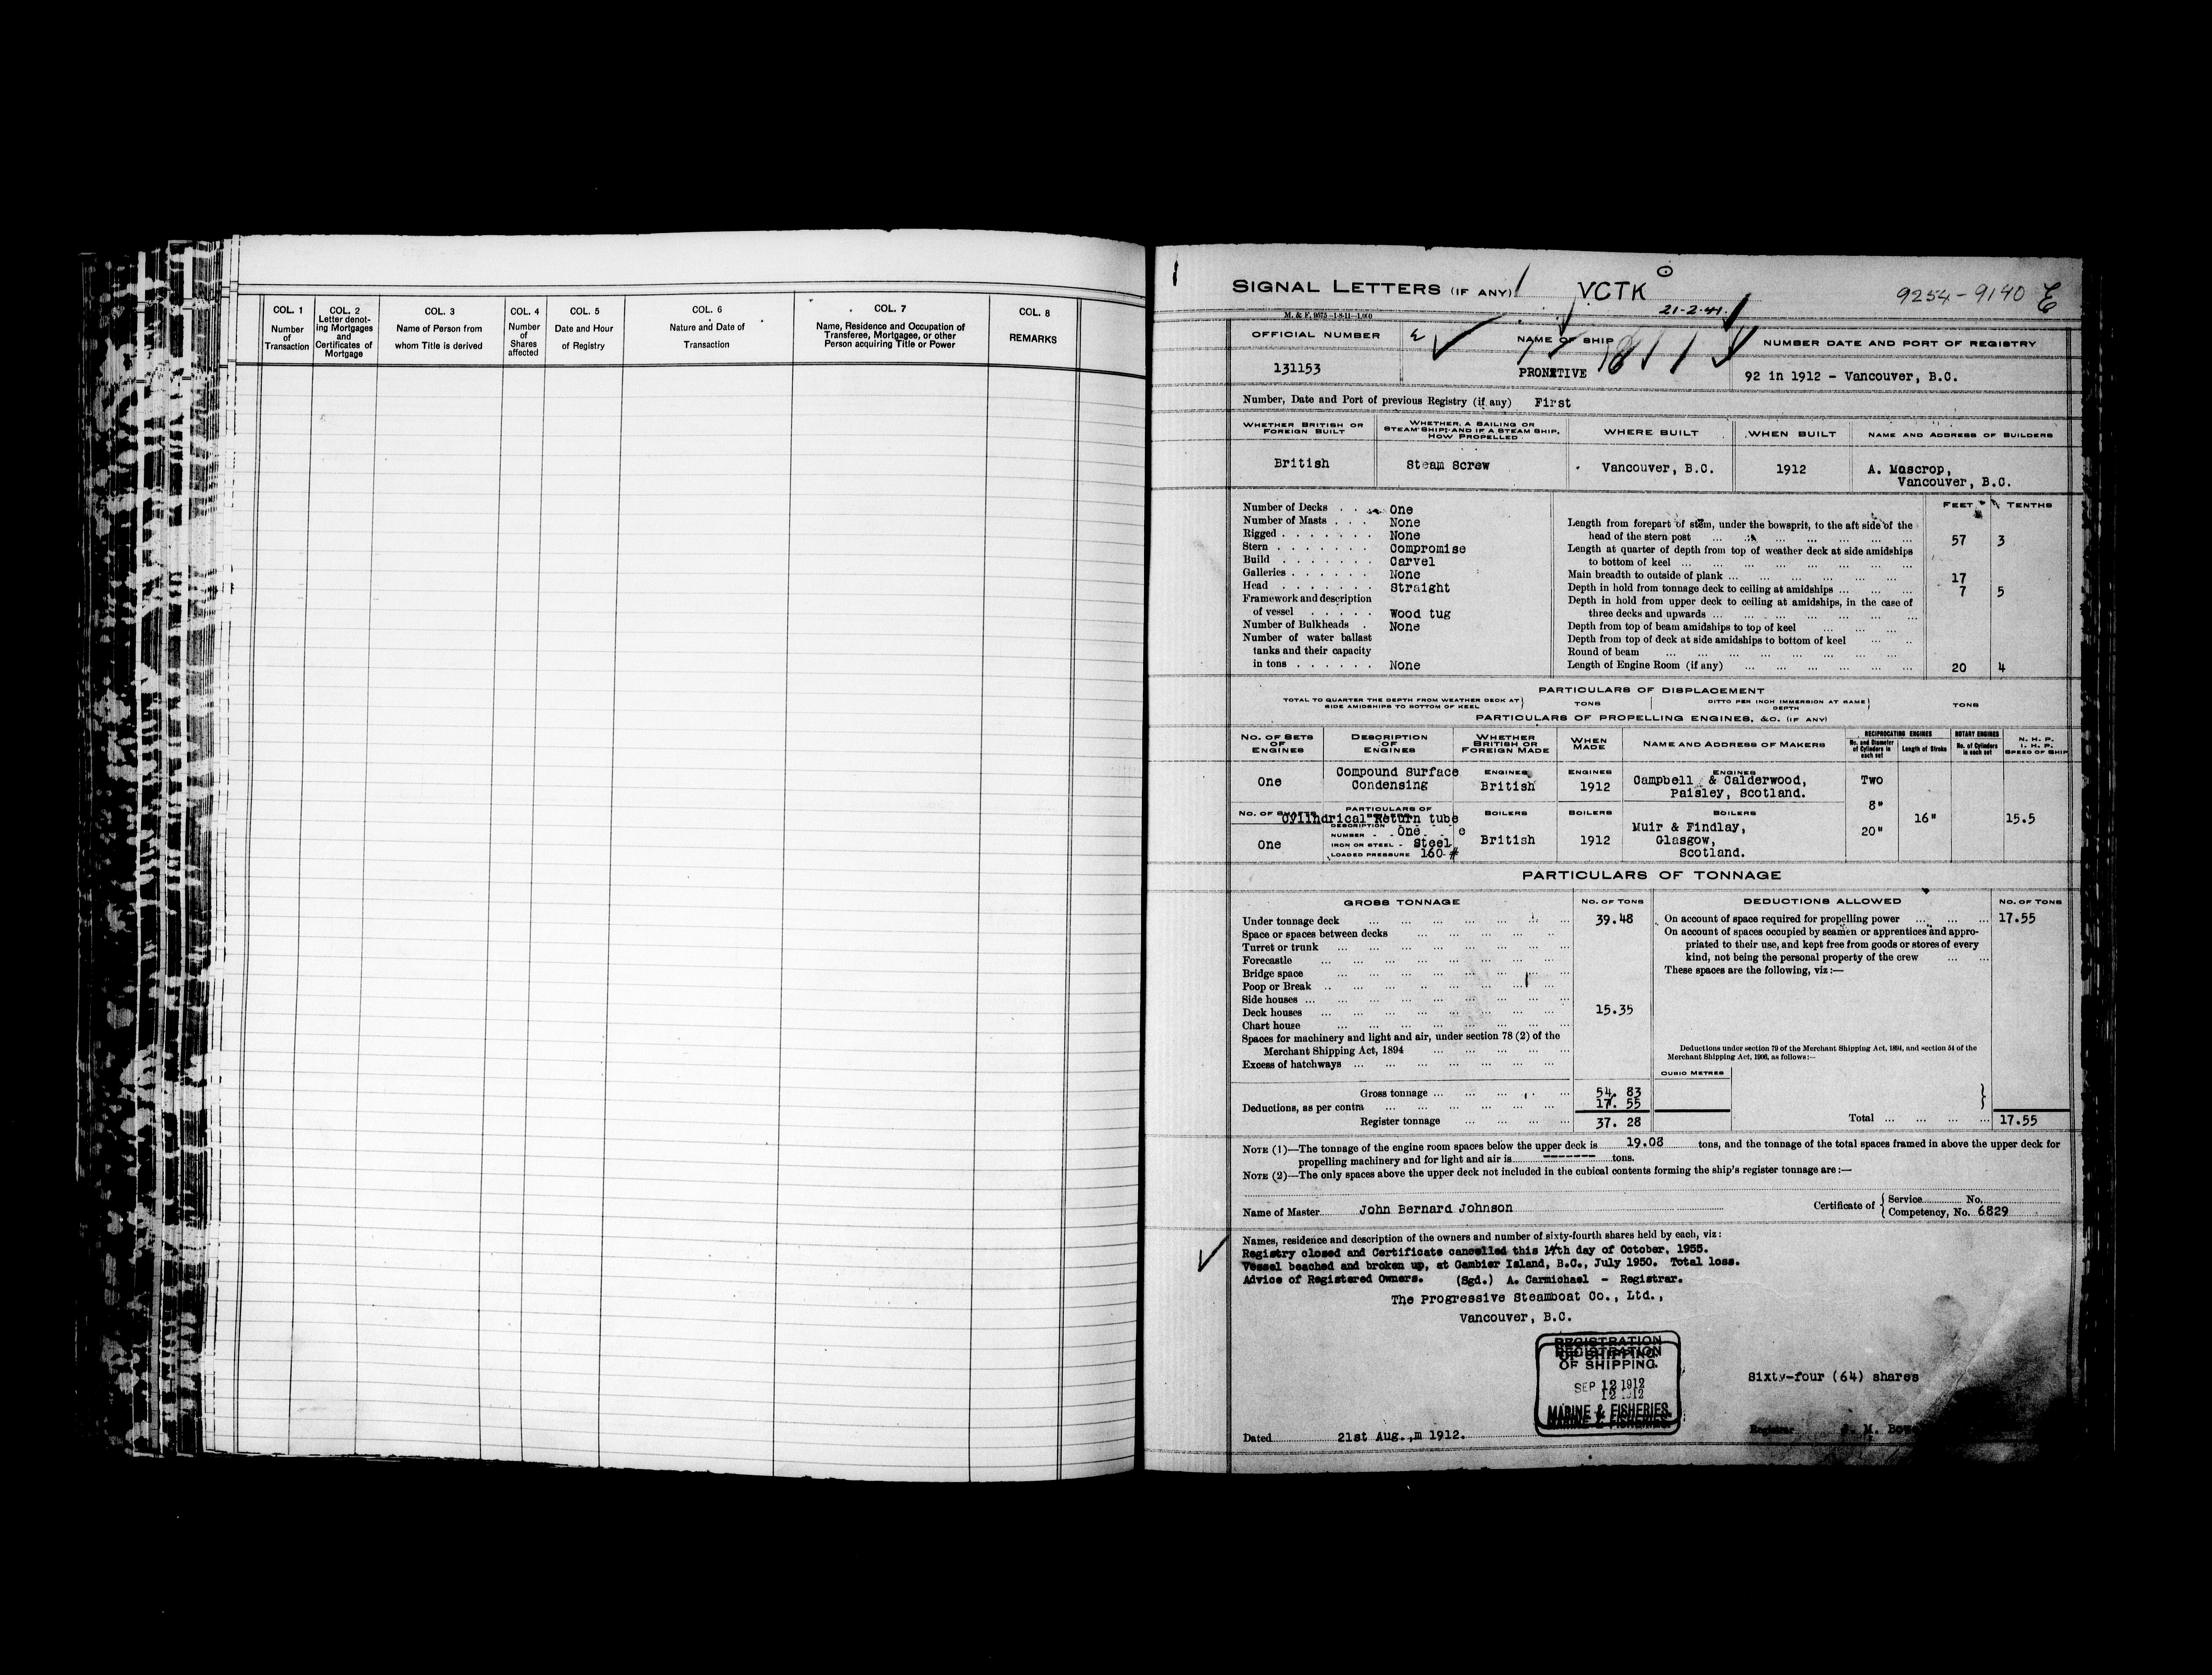 COL. 1
Number
of
Transaction
COL. 2
Letter denot-
ing Mortgages
and
Certificates of
Mortgage
COL. 3
Name of Person from
whom Title is derived
COL. 4
Number
of
Shares
affected
COL. 5
Date and Hour
of Registry
COL. 6
Nature and Date of
Transaction
COL. 7
Name, Residence and Occupation of
Transferee, Mortgagee, or other
Person acquiring Title or Power
COL. 8
REMARKS
SIGNAL LETTERS (IF ANY) VCTK
9254-9140 E
21-2-41
M. & F. 9575-1-8-11-1,000
OFFICIAL NUMBER
131153
NAME OF SHIP
NUMBER DATE AND PORT OF REGISTRY
92 in 1912 - Vancouver, B.C.
Number, Date and Port of previous Registry (if any) First
WHETHER BRITISH OR
FOREIGN BUILT
British
WHETHER A SAILING OR
STEAM SHIP; AND IF A STEAM SHIP,
HOW PROPELLED
Steam Screw
WHERE BUILT
Vancouver, B.C.
WHEN BUILT
1912
NAME AND ADDRESS OF BUILDERS
A. Moscrop,
Vancouver, B.C.
Number of Decks . . One
Number of Masts . . . None
Rigged . . . . . . . None
Stern . . . . . . . Compromise
Build . . . . . . . Carvel
Galleries . . . . . . None
Head . . . . . . . Straight
Framework and description
of vessel . . . . . Wood tug
Number of Bulkheads . None
Number of water ballast
tanks and their capacity
in tons . . . . . . None
FEET TENTHS
Length from forepart of stem, under the bowsprit, to the aft side of the
head of the stern post ... 57 3
Length at quarter of depth from top of weather deck at side amidships
to bottom of keel ...
Main breadth to outside of plank ... 17
Depth in hold from tonnage deck to ceiling at amidships ... 7 5
Depth in hold from upper deck to ceiling at amidships, in the case of
three decks and upwards ...
Depth from top of beam amidships to top of keel ...
Depth from top of deck at side amidships to bottom of keel ...
Round of beam ...
Length of Engine Room (if any) ... 20 4
PARTICULARS OF DISPLACEMENT
TOTAL TO QUARTER THE DEPTH FROM WEATHER DECK AT
SIDE AMIDSHIPS TO BOTTOM OF KEEL
TONS
DITTO PER INCH IMMERSION AT SAME
DEPTH
TONS
PARTICULARS OF PROPELLING ENGINES, &C. (IF ANY)
NO. OF SETS
OF
ENGINES
DESCRIPTION
OF
ENGINES
WHETHER
BRITISH OR
FOREIGN MADE
WHEN
MADE
NAME AND ADDRESS OF MAKERS
RECIPROCATING ENGINES
No. and Diameter
of Cylinders in
each set
Length of Stroke
ROTARY ENGINES
No. of Cylinders
in each set
N. H. P.
I. H. P.
SPEED OF SHIP
One
Compound Surface
Condensing
ENGINES
British
ENGINES
1912
ENGINES
Campbell & Calderwood,
Paisley, Scotland.
Two
8"
20"
16"
15.5
NO. OF SHAFTS
One
PARTICULARS OF
Cylindrical Return tube
DESCRIPTION
NUMBER - - One
IRON OR STEEL - Steel
LOADED PRESSURE 160 #
BOILERS
British
BOILERS
1912
BOILERS
Muir & Findlay,
Glasgow,
Scotland.
PARTICULARS OF TONNAGE
GROSS TONNAGE NO. OF TONS
Under tonnage deck ... 39.48
Space or spaces between decks ...
Turret or trunk ...
Forecastle ...
Bridge space ...
Poop or Break ...
Side houses ...
Deck houses ... 15.35
Chart house ...
Spaces for machinery and light and air, under section 78 (2) of the
Merchant Shipping Act, 1894 ...
Excess of hatchways ...
Gross tonnage ... 54. 83
Deductions, as per contra ... 17. 55
Register tonnage ... 37. 28
DEDUCTIONS ALLOWED NO. OF TONS
On account of space required for propelling power ... 17.55
On account of spaces occupied by seamen or apprentices and appro-
priated to their use, and kept free from goods or stores of every
kind, not being the personal property of the crew ...
These spaces are the following, viz:—
Deductions under section 79 of the Merchant Shipping Act, 1894, and section 54 of the
Merchant Shipping Act, 1906, as follows:—
CUBIC METRES
Total ... 17.55
NOTE (1)—The tonnage of the engine room spaces below the upper deck is 19.08 tons, and the tonnage of the total spaces framed in above the upper deck for
propelling machinery and for light and air is ------- tons.
NOTE (2)—The only spaces above the upper deck not included in the cubical contents forming the ship's register tonnage are:—
Name of Master John Bernard Johnson
Certificate of Service No.
Competency, No. 6829
Names, residence and description of the owners and number of sixty-fourth shares held by each, viz:
Registry closed and Certificate cancelled this 14th day of October, 1955.
Vessel beached and broken up, at Gambier Island, B.C., July 1950. Total loss.
Advice of Registered Owners. (Sgd.) A. Carmichael - Registrar.
The Progressive Steamboat Co., Ltd.,
Vancouver, B.C.
REGISTRATION
OF SHIPPING
SEP 12 1912
MARINE & FISHERIES
Sixty-four (64) shares
Dated 21st Aug.,m 1912.
Registrar